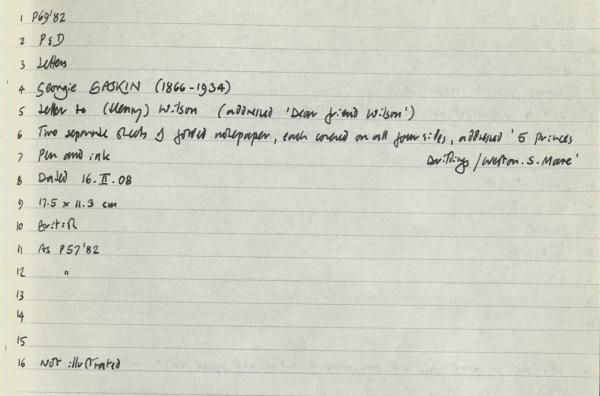 1 P69'82
2 P&D
3 Letters
4 Georgie GASKIN (1866-1934)
5 Letter to (Henry) Wilson (addressed 'Dear friend Wilson')
6 Two separate sheets of folded notepaper, each covered on all four sides, addressed '5 Princes
Buildings / Weston. S. Mare'
7 Pen and ink
8 Dated 16.II.08
9 17.5 x 11.3 cm
10 British
11 As P57'82
12 "
13
14
15
16 Not illustrated